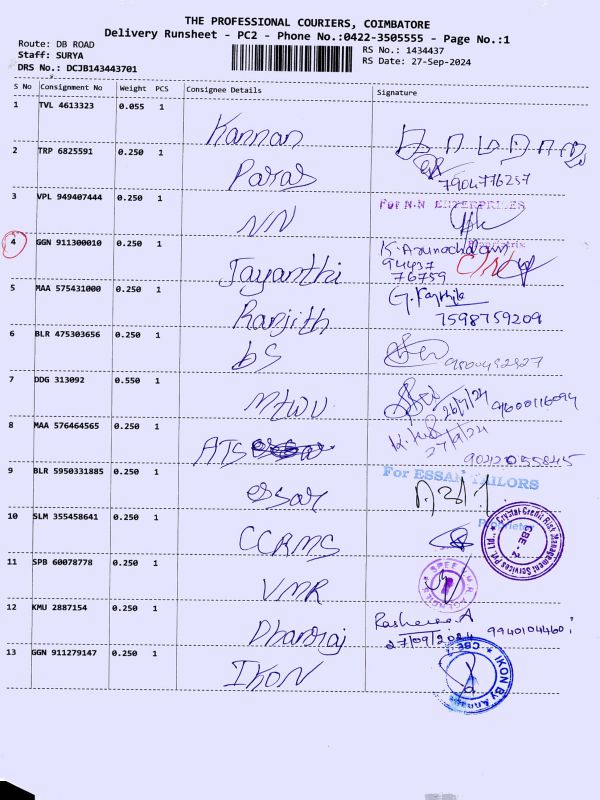 THE PROFESSIONAL COURIERS, COIMBATORE
Delivery Runsheet - PC2 - Phone No.:0422-3505555 - Page No.:1
Route: DB ROAD
Staff: SURYA
DRS No.: DCJB143443701
RS No.: 1434437
RS Date: 27-Sep-2024
S No Consignment No Weight PCS Consignee Details Signature
1 TVL 4613323 0.055 1 Kannan
2 TRP 6825591 0.250 1 Paras 7904776237
3 VPL 949407444 0.250 1 NN For N.N ENTERPRISES
4 GGN 911300010 0.250 1 Jayanthi K. Arunachalam
94437
76759
5 MAA 575431000 0.250 1 Ranjith
7598759209
6 BLR 475303656 0.250 1 BS
7 DDG 313092 0.550 1 MTWU
8 MAA 576464565 0.250 1 ATS
27/9/24
9 BLR 5950331885 0.250 1 essar For ESSAR TAILORS
10 SLM 355458641 0.250 1 CCRMS
Crystal Credit Risk Management Services Pvt. Ltd.
CBE - 2
11 SPB 60078778 0.250 1 VMR
12 KMU 2887154 0.250 1 Dhanraj
27/09/2024 9940104460
13 GGN 911279147 0.250 1 IKON
IKON BY
CBE